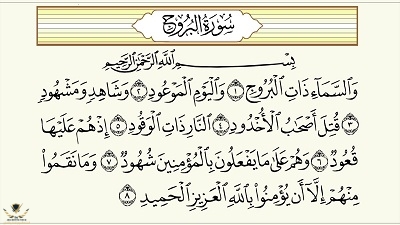 سُورَةُ الْبُرُوجِ
بِسْمِ اللَّهِ الرَّحْمَٰنِ الرَّحِيمِ
وَالسَّمَاءِ ذَاتِ الْبُرُوجِ ١ وَالْيَوْمِ الْمَوْعُودِ ٢ وَشَاهِدٍ وَمَشْهُودٍ
٣ قُتِلَ أَصْحَابُ الْأُخْدُودِ ٤ النَّارِ ذَاتِ الْوَقُودِ ٥ إِذْ هُمْ عَلَيْهَا
قُعُودٌ ٦ وَهُمْ عَلَىٰ مَا يَفْعَلُونَ بِالْمُؤْمِنِينَ شُهُودٌ ٧ وَمَا نَقَمُوا
مِنْهُمْ إِلَّا أَن يُؤْمِنُوا بِاللَّهِ الْعَزِيزِ الْحَمِيدِ ٨